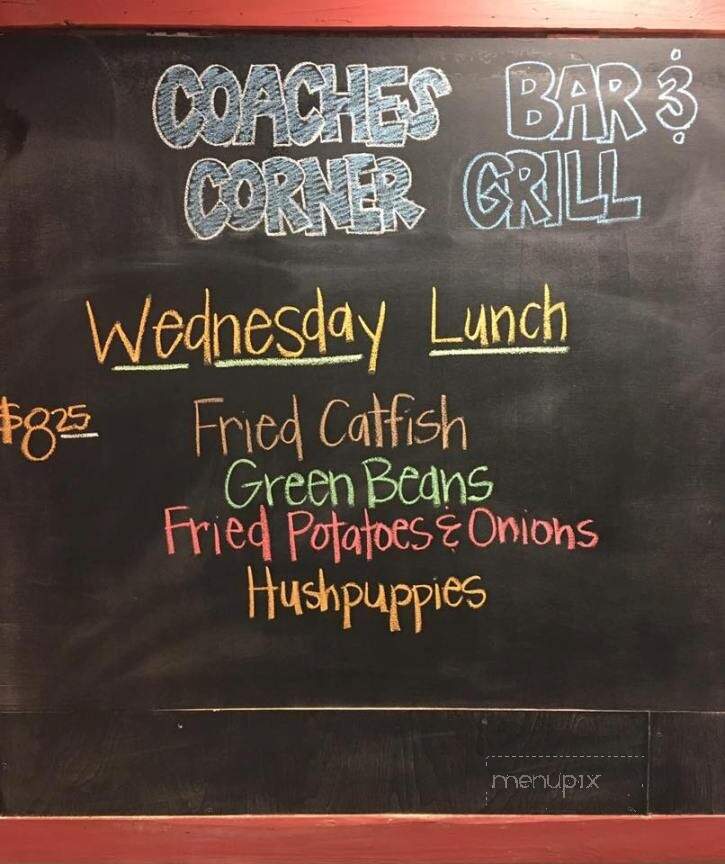 COACHES BAR &
CORNER GRILL
Wednesday Lunch
$8.25 Fried Catfish
Green Beans
Fried Potatoes & Onions
Hushpuppies
menupix